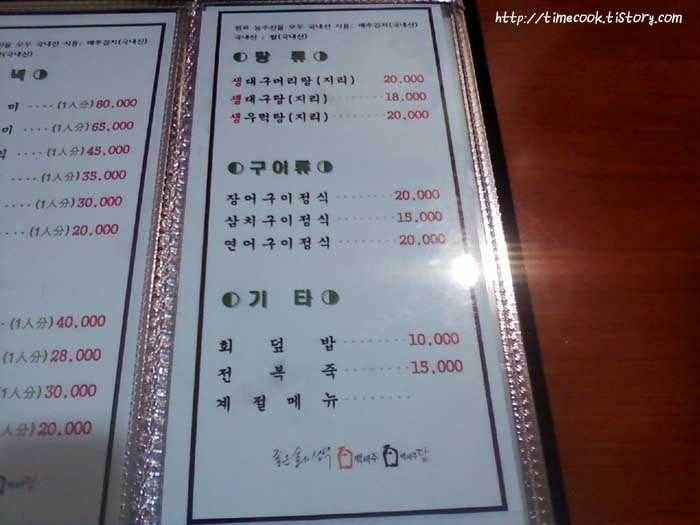 http://timecook.tistory.com
모두 국내산 사용: 배추김치(국내산)
(국내산)
녁
미 ···· (1人分) 80,000
미 ···· (1人分) 65,000
식 ···· (1人分) 45,000
···· (1人分) 35,000
···· (1人分) 30,000
(1人分) 20,000
(1人分) 40,000
(1人分) 28,000
(1人分) 30,000
(1人分) 20,000
원료 농수산물 모두 국내산 사용: 배추김치(국내산)
국내산 : 쌀(국내산)
탕 류
생대구머리탕(지리) 20,000
생대구탕(지리) 18,000
생우럭탕(지리) 20,000
구이류
장어구이정식 20,000
삼치구이정식 15,000
연어구이정식 20,000
기 타
회 덮 밥 10,000
전 복 죽 15,000
계 절 메 뉴
좋은 술의 선택 백세주 백세주담